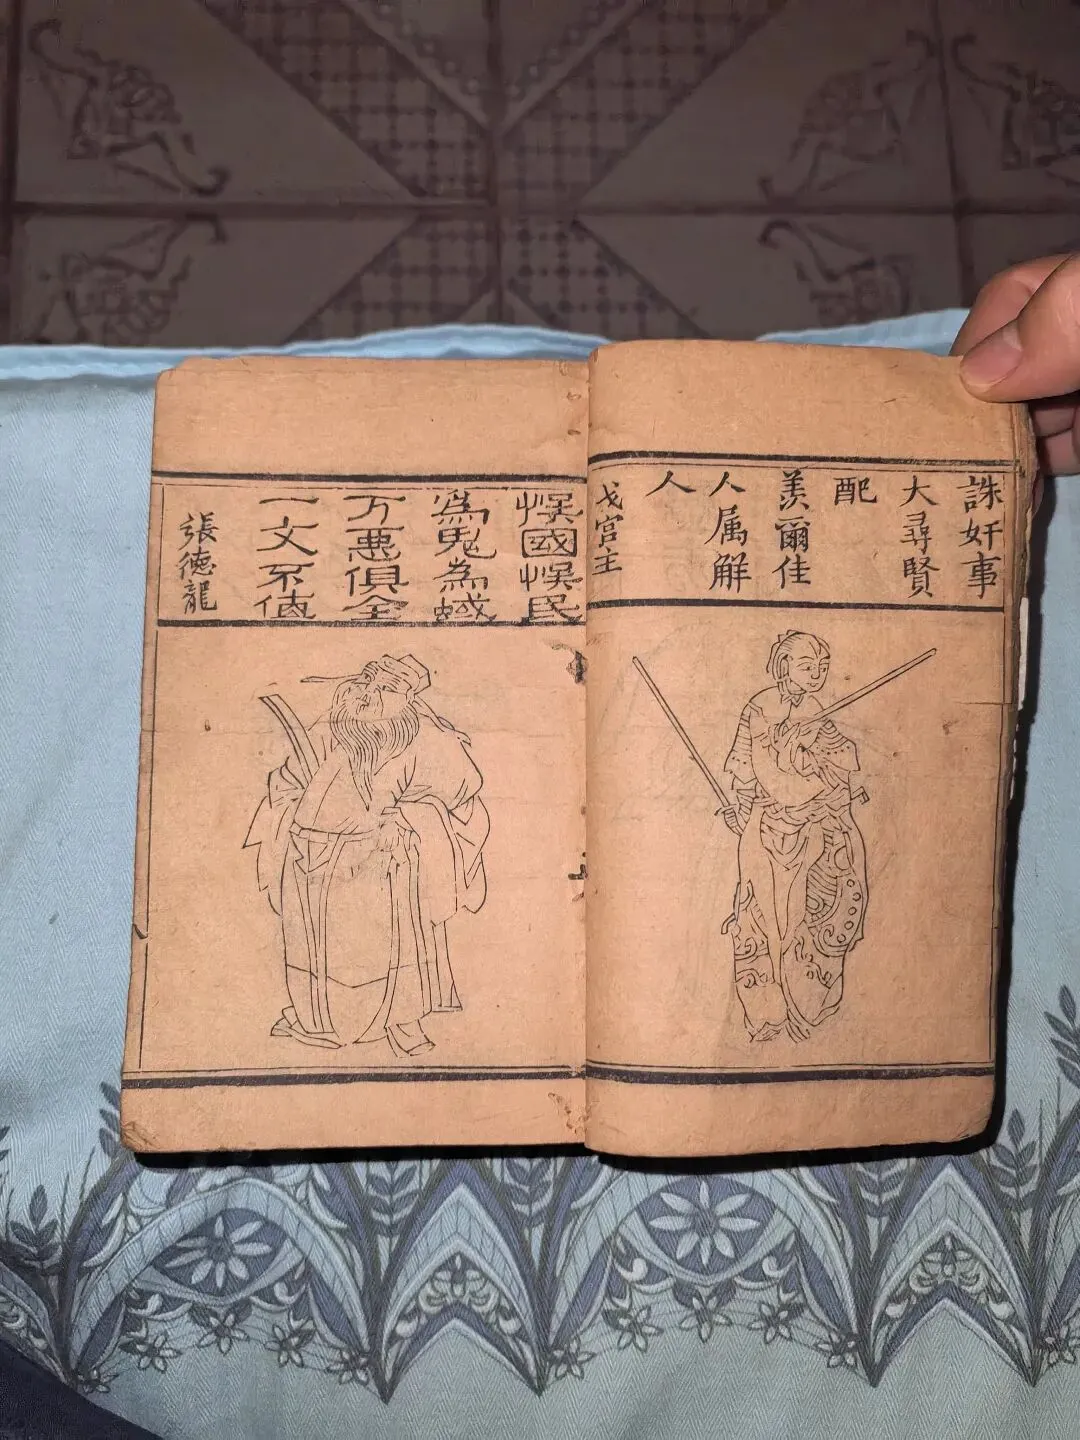 誅奸事
大尋賢
配
羨爾佳
人属解
人
戈宮主
悞國悞民
為鬼為蜮
万悪俱全
一文不値
張德龍